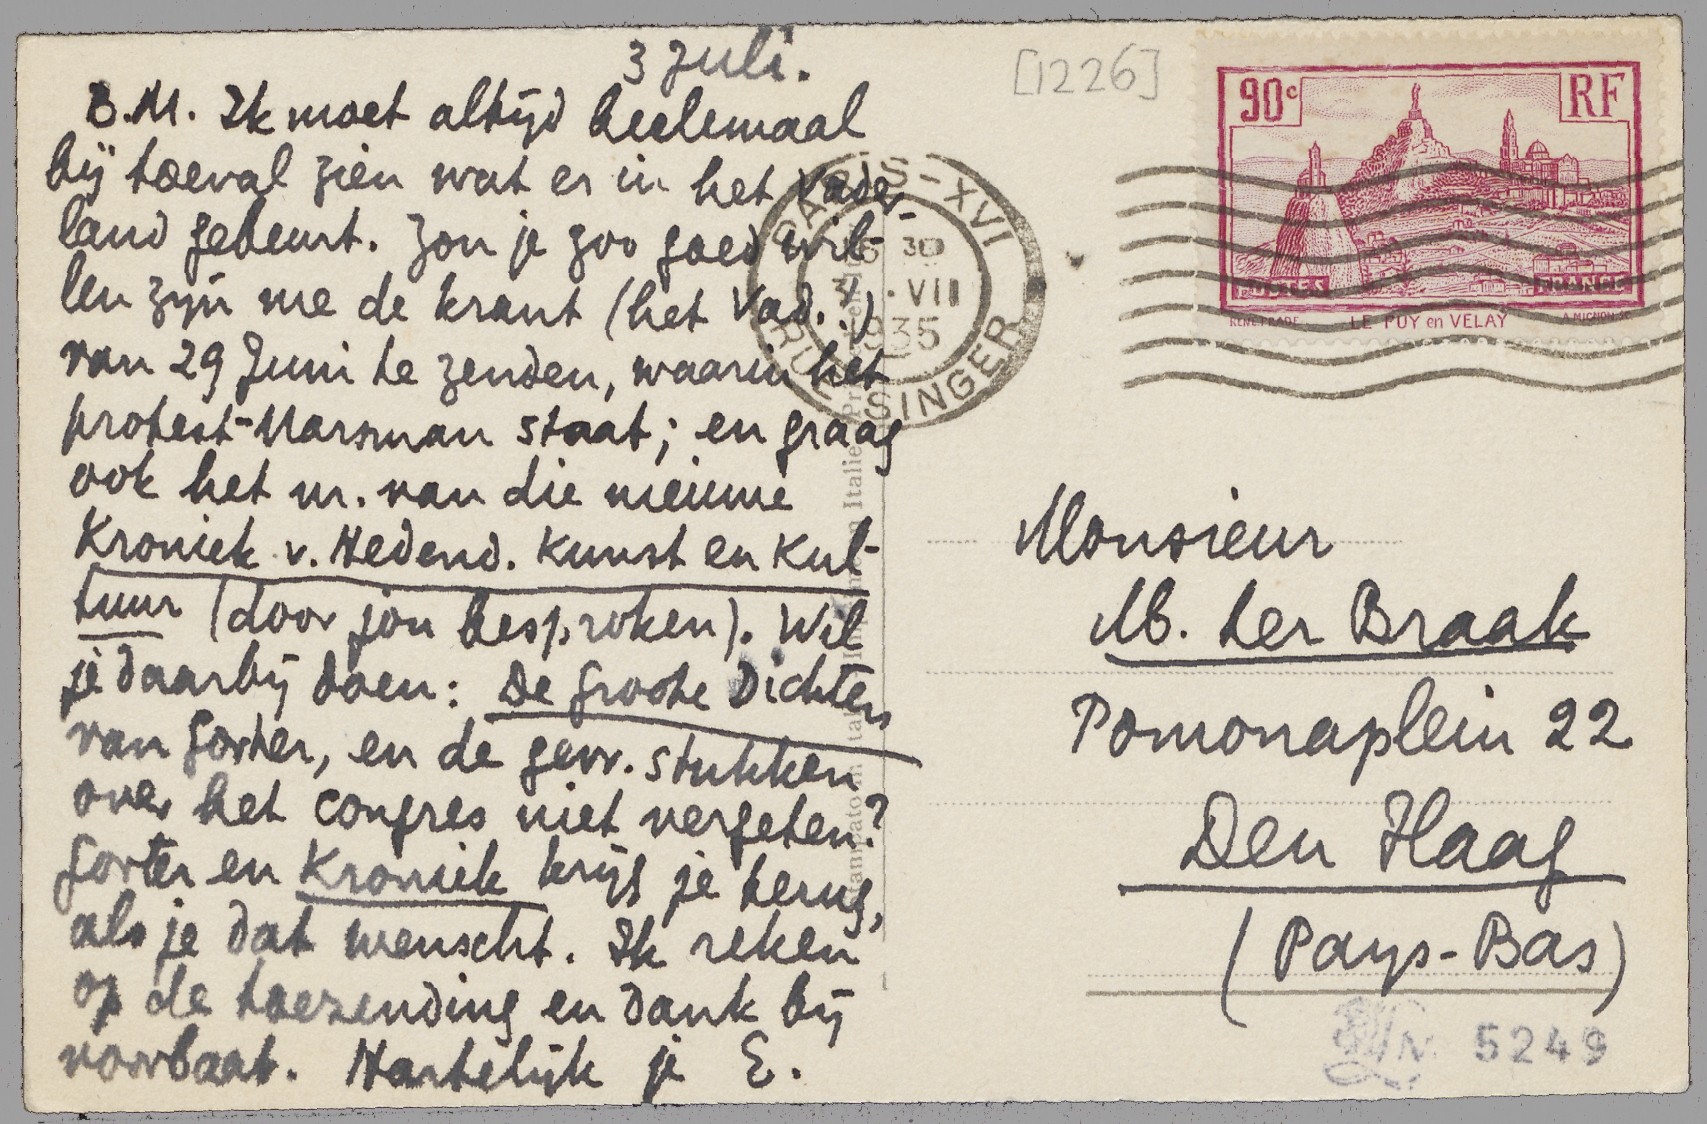 3 Juli.
B.M. Ik moet altijd heelemaal
bij toeval zien wat er in het Vader-
land gebeurt. Zou je zoo goed wil-
len zijn me de krant (het Vad.!)
van 29 Juni te zenden, waarin het
protest-Marsman staat; en graag
ook het nr. van die nieuwe
Kroniek v. Hedend. Kunst en Kul-
tuur (door jou besproken). Wil
je daarbij doen: De Groote Dichters
van Gorter, en de gevr. stukken
over het congres niet vergeten?
Gorter en Kroniek krijg je terug,
als je dat wenscht. Ik reken
op de toezending en dank bij
voorbaat. Hartelijk je E.
[1226]
90c RF
FRANCE
RENÉ GRADE LE PUY en VELAY A.MIGNON.SC
PARIS-XVI
30
3 .VII
1935
RUE SINGER
Monsieur
M. ter Braak
Pomonaplein 22
Den Haag
(Pays-Bas)
5249